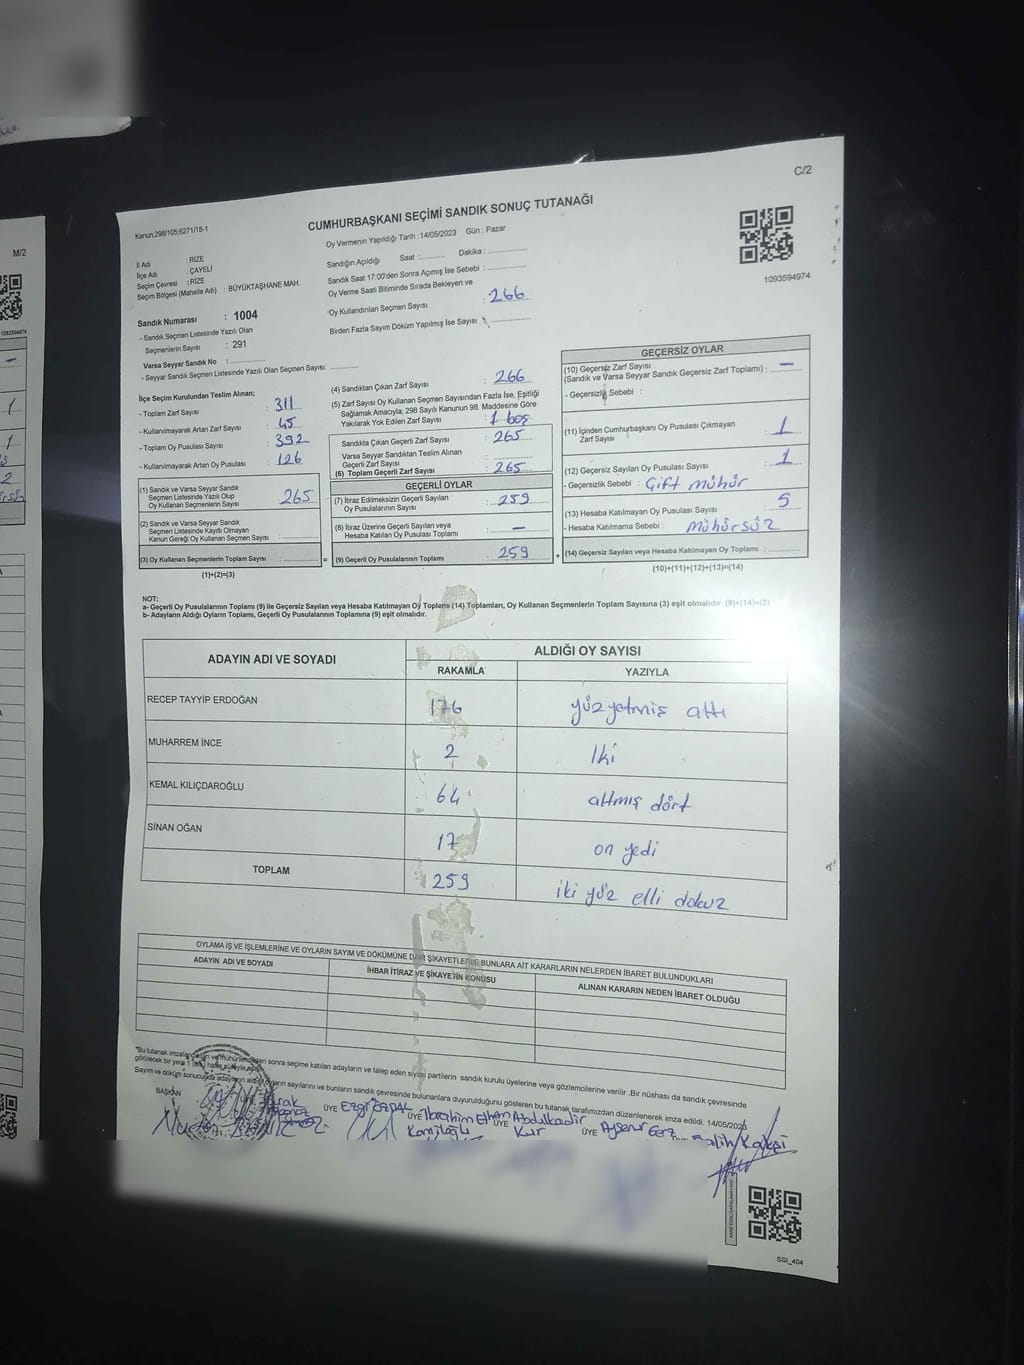 C/2
CUMHURBAŞKANI SEÇİMİ SANDIK SONUÇ TUTANAĞI
Kanun:298/105,6271/18-1
Oy Vermenin Yapıldığı Tarih :14/05/2023 Gün : Pazar
İl Adı : RİZE
İlçe Adı : ÇAYELİ
Seçim Çevresi : RİZE
Seçim Bölgesi (Mahalle Adı) : BÜYÜKTAŞHANE MAH.
Sandığın Açıldığı Saat :............ Dakika :............
Sandık Saat 17:00'den Sonra Açımış İse Sebebi :............
Oy Verme Saati Bitiminde Sırada Bekleyen ve
Oy Kullandırılan Seçmen Sayısı : 266
Birden Fazla Sayım Döküm Yapılmış İse Sayısı ............
1093594974
Sandık Numarası : 1004
- Sandık Seçmen Listesinde Yazılı Olan
Seçmenlerin Sayısı : 291
Varsa Seyyar Sandık No :............
- Seyyar Sandık Seçmen Listesinde Yazılı Olan Seçmen Sayısı:............
İlçe Seçim Kurulundan Teslim Alınan;
- Toplam Zarf Sayısı : 311
- Kullanılmayarak Artan Zarf Sayısı : 45
- Toplam Oy Pusulası Sayısı : 392
- Kullanılmayarak Artan Oy Pusulası : 126
(1) Sandık ve Varsa Seyyar Sandık
Seçmen Listesinde Yazılı Olup
Oy Kullanan Seçmenlerin Sayısı : 265
(2) Sandık ve Varsa Seyyar Sandık
Seçmen Listesinde Kayıtlı Olmayan
Kanun Gereği Oy Kullanan Seçmen Sayısı :............
(3) Oy Kullanan Seçmenlerin Toplam Sayısı :............
(1)+(2)=(3)
(4) Sandıktan Çıkan Zarf Sayısı : 266
(5) Zarf Sayısı Oy Kullanan Seçmen Sayısından Fazla İse, Eşitliği
Sağlamak Amacıyla; 298 Sayılı Kanunun 98. Maddesine Göre
Yakılarak Yok Edilen Zarf Sayısı : 1 boş
Sandıkta Çıkan Geçerli Zarf Sayısı : 265
Varsa Seyyar Sandıktan Teslim Alınan
Geçerli Zarf Sayısı :............
(6) Toplam Geçerli Zarf Sayısı : 265
GEÇERLİ OYLAR
(7) İtiraz Edilmeksizin Geçerli Sayılan
Oy Pusulalarının Sayısı : 259
(8) İtiraz Üzerine Geçerli Sayılan veya
Hesaba Katılan Oy Pusulası Toplamı : —
= (9) Geçerli Oy Pusulalarının Toplamı : 259 +
GEÇERSİZ OYLAR
(10) Geçersiz Zarf Sayısı
(Sandık ve Varsa Seyyar Sandık Geçersiz Zarf Toplamı) : —
- Geçersizlik Sebebi :
(11) İçinden Cumhurbaşkanı Oy Pusulası Çıkmayan
Zarf Sayısı : 1
(12) Geçersiz Sayılan Oy Pusulası Sayısı : 1
- Geçersizlik Sebebi : Çift mühür
(13) Hesaba Katılmayan Oy Pusulası Sayısı : 5
- Hesaba Katılmama Sebebi : Mühürsüz
(14) Geçersiz Sayılan veya Hesaba Katılmayan Oy Toplamı :............
(10)+(11)+(12)+(13)=(14)
NOT:
a- Geçerli Oy Pusulalarının Toplamı (9) ile Geçersiz Sayılan veya Hesaba Katılmayan Oy Toplamı (14) Toplamları, Oy Kullanan Seçmenlerin Toplam Sayısına (3) eşit olmalıdır. (9)+(14)=(3)
b- Adayların Aldığı Oyların Toplamı, Geçerli Oy Pusulalarının Toplamına (9) eşit olmalıdır.
ADAYIN ADI VE SOYADI ALDIĞI OY SAYISI
RAKAMLA YAZIYLA
RECEP TAYYİP ERDOĞAN 176 yüz yetmiş altı
MUHARREM İNCE 2 İki
KEMAL KILIÇDAROĞLU 64 altmış dört
SİNAN OĞAN 17 on yedi
TOPLAM 259 iki yüz elli dokuz
OYLAMA İŞ VE İŞLEMLERİNE VE OYLARIN SAYIM VE DÖKÜMÜNE DAİR ŞİKAYETLERLE BUNLARA AİT KARARLARIN NELERDEN İBARET BULUNDUKLARI
ADAYIN ADI VE SOYADI İHBAR İTİRAZ VE ŞİKAYETİN KONUSU ALINAN KARARIN NEDEN İBARET OLDUĞU
sonra seçime katılan adayların ve talep eden siyasi partilerin sandık kurulu üyelerine veya gözlemcilerine verilir. Bir nüshası da sandık çevresinde
Sayım ve döküm sonucunda adayların aldığı oyların sayılarını ve bunların sandık çevresinde bulunanlara duyurulduğunu gösteren bu tutanak tarafımızdan düzenlenerek imza edildi. 14/05/2023
BAŞKAN ÜYE ÜYE İbrahim Ethem ÜYE Abdulkadir Kur ÜYE Ayşenur
SSI_404
M/2
1093594974